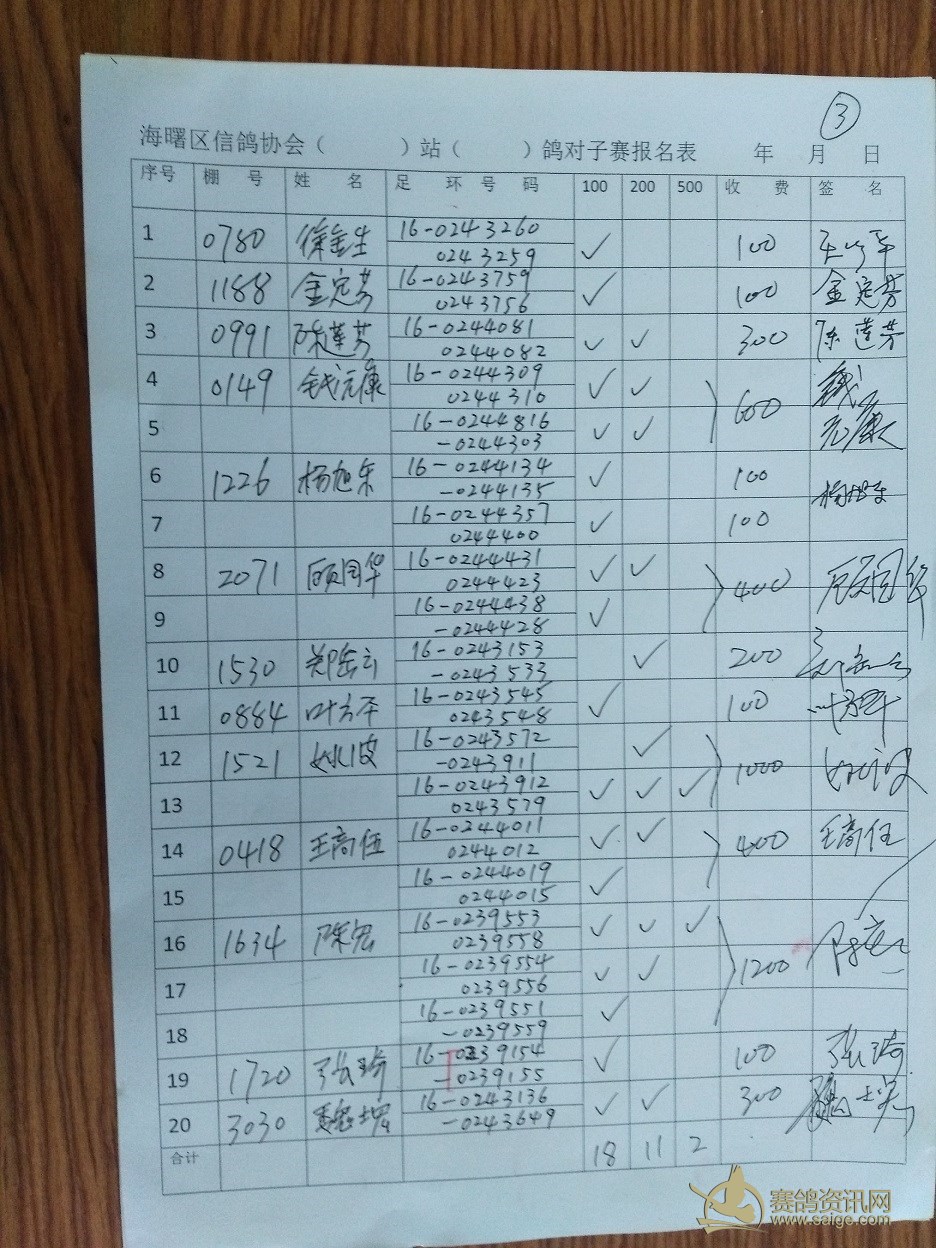 ③
海曙区信鸽协会（ ）站（ ）鸽对子赛报名表 年 月 日
序号 棚 号 姓 名 足 环 号 码 100 200 500 收 费 签 名
1 0780 徐全生 16-0243260 ✓ 100
0243259
2 1188 金定芳 16-0243759 ✓ 100 金定芳
0243756
3 0991 陈莲芳 16-0244081 ✓ ✓ 300 陈莲芳
0244082
4 0149 钱元康 16-0244309 ✓ ✓ 600 钱元康
0244310
5 16-0244816 ✓ ✓
-0244303
6 1226 杨旭东 16-0244134 ✓ 100 杨旭东
-0244135
7 16-0244357 ✓ 100
0244400
8 2071 顾国华 16-0244431 ✓ ✓ 400 顾国华
0244423
9 16-0244438 ✓
-0244428
10 1530 16-0243153 ✓ 200
-0243533
11 0884 叶方平 16-0243545 ✓ 100
0243548
12 1521 16-0243572 ✓ 1000
-0243911
13 16-0243912 ✓ ✓ ✓
0243579
14 0418 王高伍 16-0244011 ✓ ✓ 400 王高伍
0244012
15 16-0244019 ✓
0244015
16 1634 陈宏 16-0239553 ✓ ✓ ✓ 1200
0239558
17 16-0239554 ✓ ✓
0239556
18 16-0239551 ✓
-0239559
19 1720 张琦 16-0239154 ✓ 100 张琦
-0239155
20 3030 16-0243136 ✓ ✓ 300
-0243649
合计 18 11 2
赛鸽资讯网
www.saige.com